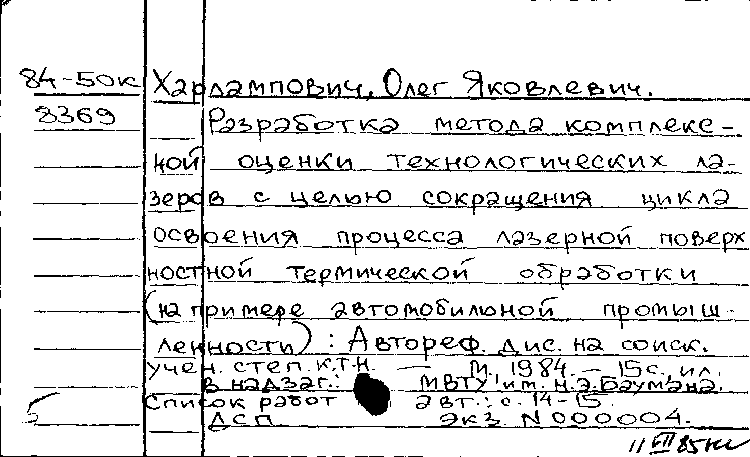 84-50к Харлампович, Олег Яковлевич.
8369 Разработка метода комплекс-
ной оценки технологических ла-
зеров с целью сокращения цикла
освоения процесса лазерной поверх
ностной термической обработки
(на примере автомобильной промыш-
ленности) : Автореф. дис. на соиск.
учен. степ. к.т.н. — М. 1984. — 15 с., ил.
В надзаг.: МВТУ им. Н.Э. Баумана.
Список работ авт.: с. 14-15.
5 ДСП экз. N 000004.
11 VII 85